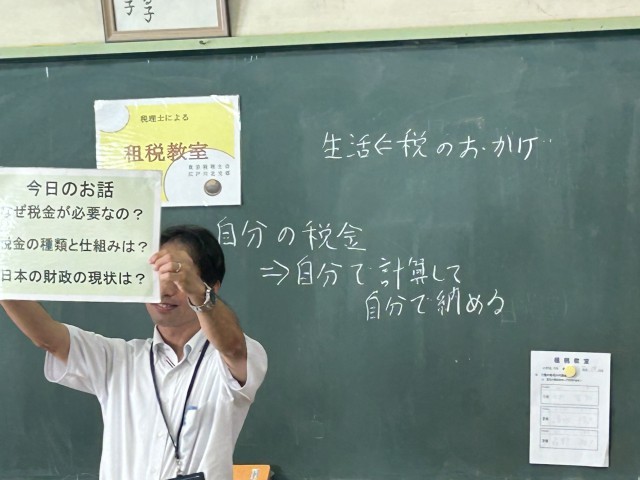 税理士による
租税教室
東京税理士会
江戸川北支部
今日のお話
なぜ税金が必要なの?
税金の種類と仕組みは?
日本の財政の現状は?
生活⇐税のおかげ
自分の税金
⇒自分で計算して
自分で納める
租税教室